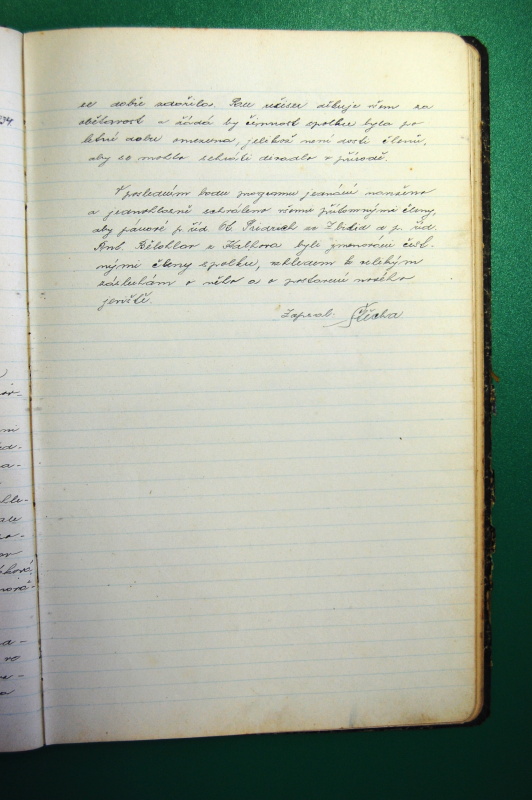 se dobře zdařila. Pan režiser děkuje všem za
obětavost a žádá by činnost spolku byla po
letní dobu omezena, jelikož není dosti členů,
aby se mohlo sehráti divadlo v přírodě.
V posledním bodu programu jednání navrženo
a jednohlasně schváleno všemi přítomnými členy,
aby pánové p. říd. Ot. Fridrich ze Zbidid a p. říd.
Ant. Bělohlav z Kalhova byli jmenováni čest-
nými členy spolku, vzhledem k velikým
zásluhám o něho a o postavení nového
jeviště.
Zapsal: Štícha
34.